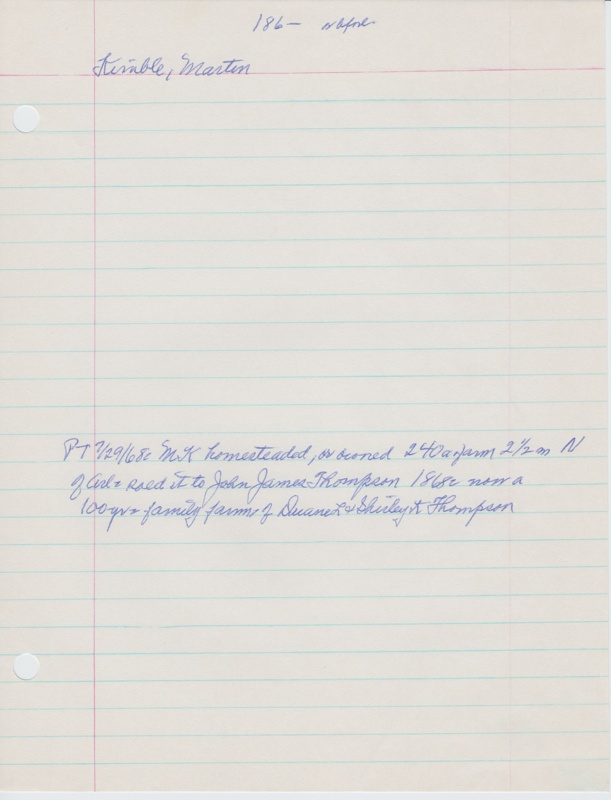 186- or before
Kimble, Martin
PT 7/29/68: MK homesteaded, or owned 240 a farm 2 1/2 m N
of Arl= sold it to John James Thompson 1868: now a
100-yr= family farm of Duane L & Shirley K Thompson